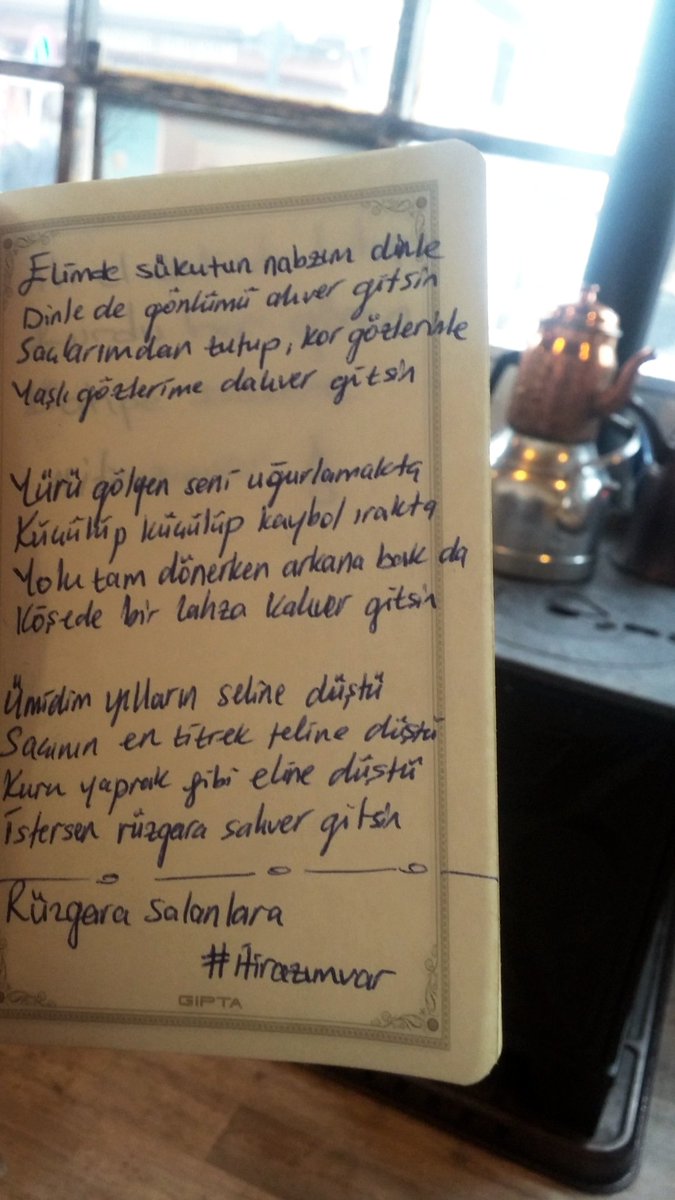 Elimde sükutun nabzım dinle
Dinle de gönlümü alıver gitsin
Saçlarımdan tutup, kor gözlerinle
Yaşlı gözlerime dalıver gitsin
Yürü gölgen seni uğurlamakta
Küçülüp küçülüp kaybol ırakta
Yolu tam dönerken arkana bak da
Köşede bir lahza kalıver gitsin
Ümidim yılların seline düştü
Saçının en titrek teline düştü
Kuru yaprak gibi eline düştü
İstersen rüzgara salıver gitsin
Rüzgara salanlara
#itirazımvar
GIPTA